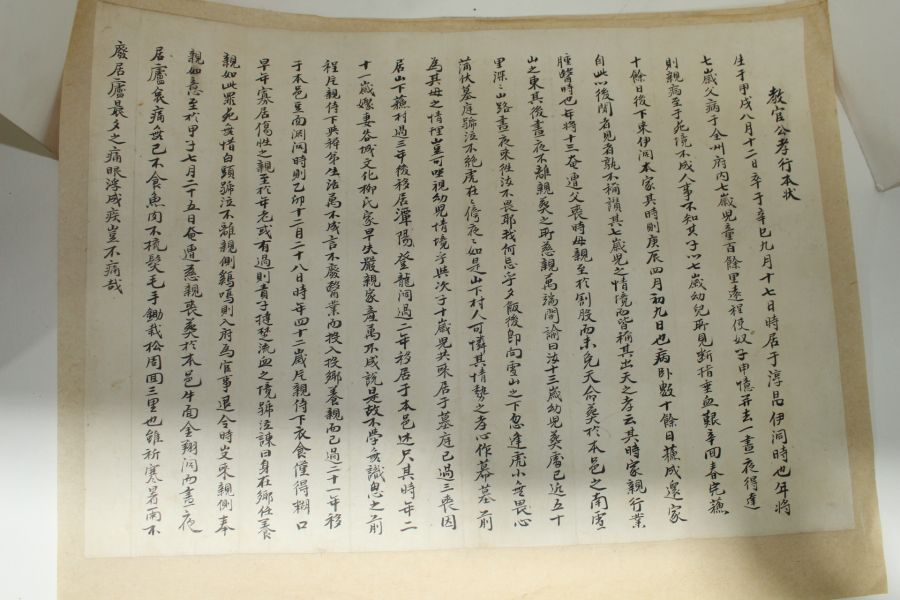 教官公孝行本狀
生于甲戌八月十二日卒于辛巳九月十七日時居于淳昌伊洞時也年將
七歲父病于全州府內七歲兒童百餘里遠程使奴子甲憶并去一晝夜得達
則親病至于死境不成人事不知其子以七歲幼兒所見斷指垂血艱辛回春完蘇
十餘日後下來伊洞本家其時則庚辰四月初九日也病臥數十餘日擄成還家
自此以後聞者見者孰不稱讚其七歲兒之情境而皆稱其出天之孝云其時家親行業
腫醫時也年將十三奄遭父喪時母親至於割股而未免天命葬於本邑之南雪
山之東其後晝夜不離親葬之所慈親萬端開諭曰汝十三歲幼兒葬處已近五十
里深山路晝夜來往汝不畏耶我何忍乎夕飯後卽向雪山之下忽逢虎小無畏心
蒲伏墓庭號泣不絶虎在倚夜如是山下村人可憐其情勢之孝心作幕墓前
為其母之情理豈可坐視幼兒情境乎與次子十歲兒共來居于墓庭已過三喪因
居山下蘇村過三年後移居潭陽登龍洞過二年移居于本邑述只其時年二
十一歲嫁妻谷城文化柳氏家早失嚴親家產萬不成說是故不學無識思之前
程片親侍下與稚弟生活萬不成言不廢醫業而投入投鄉養親而已過二十一年移
于本邑豆南洞洞時則乙卯十二月二十八日時年四十二歲片親侍下衣食僅得糊口
早年寡居傷性之親至於年老或有過則責子撻楚流血之境號泣諫曰身在鄉任養
親如此罪死無惜白顆號泣不離親側鷄鳴則入府為官事退令時必來親側奉
親如意至於甲子七月二十五日奄遭慈親喪葬於本邑牛面金翔洞而晝夜
居廬哀痛無已不食魚肉不梳髮毛手鋤栽松周回三里也雖祈寒暑雨不
廢居廬晨夕之痛眼浮成疾豈不痛哉